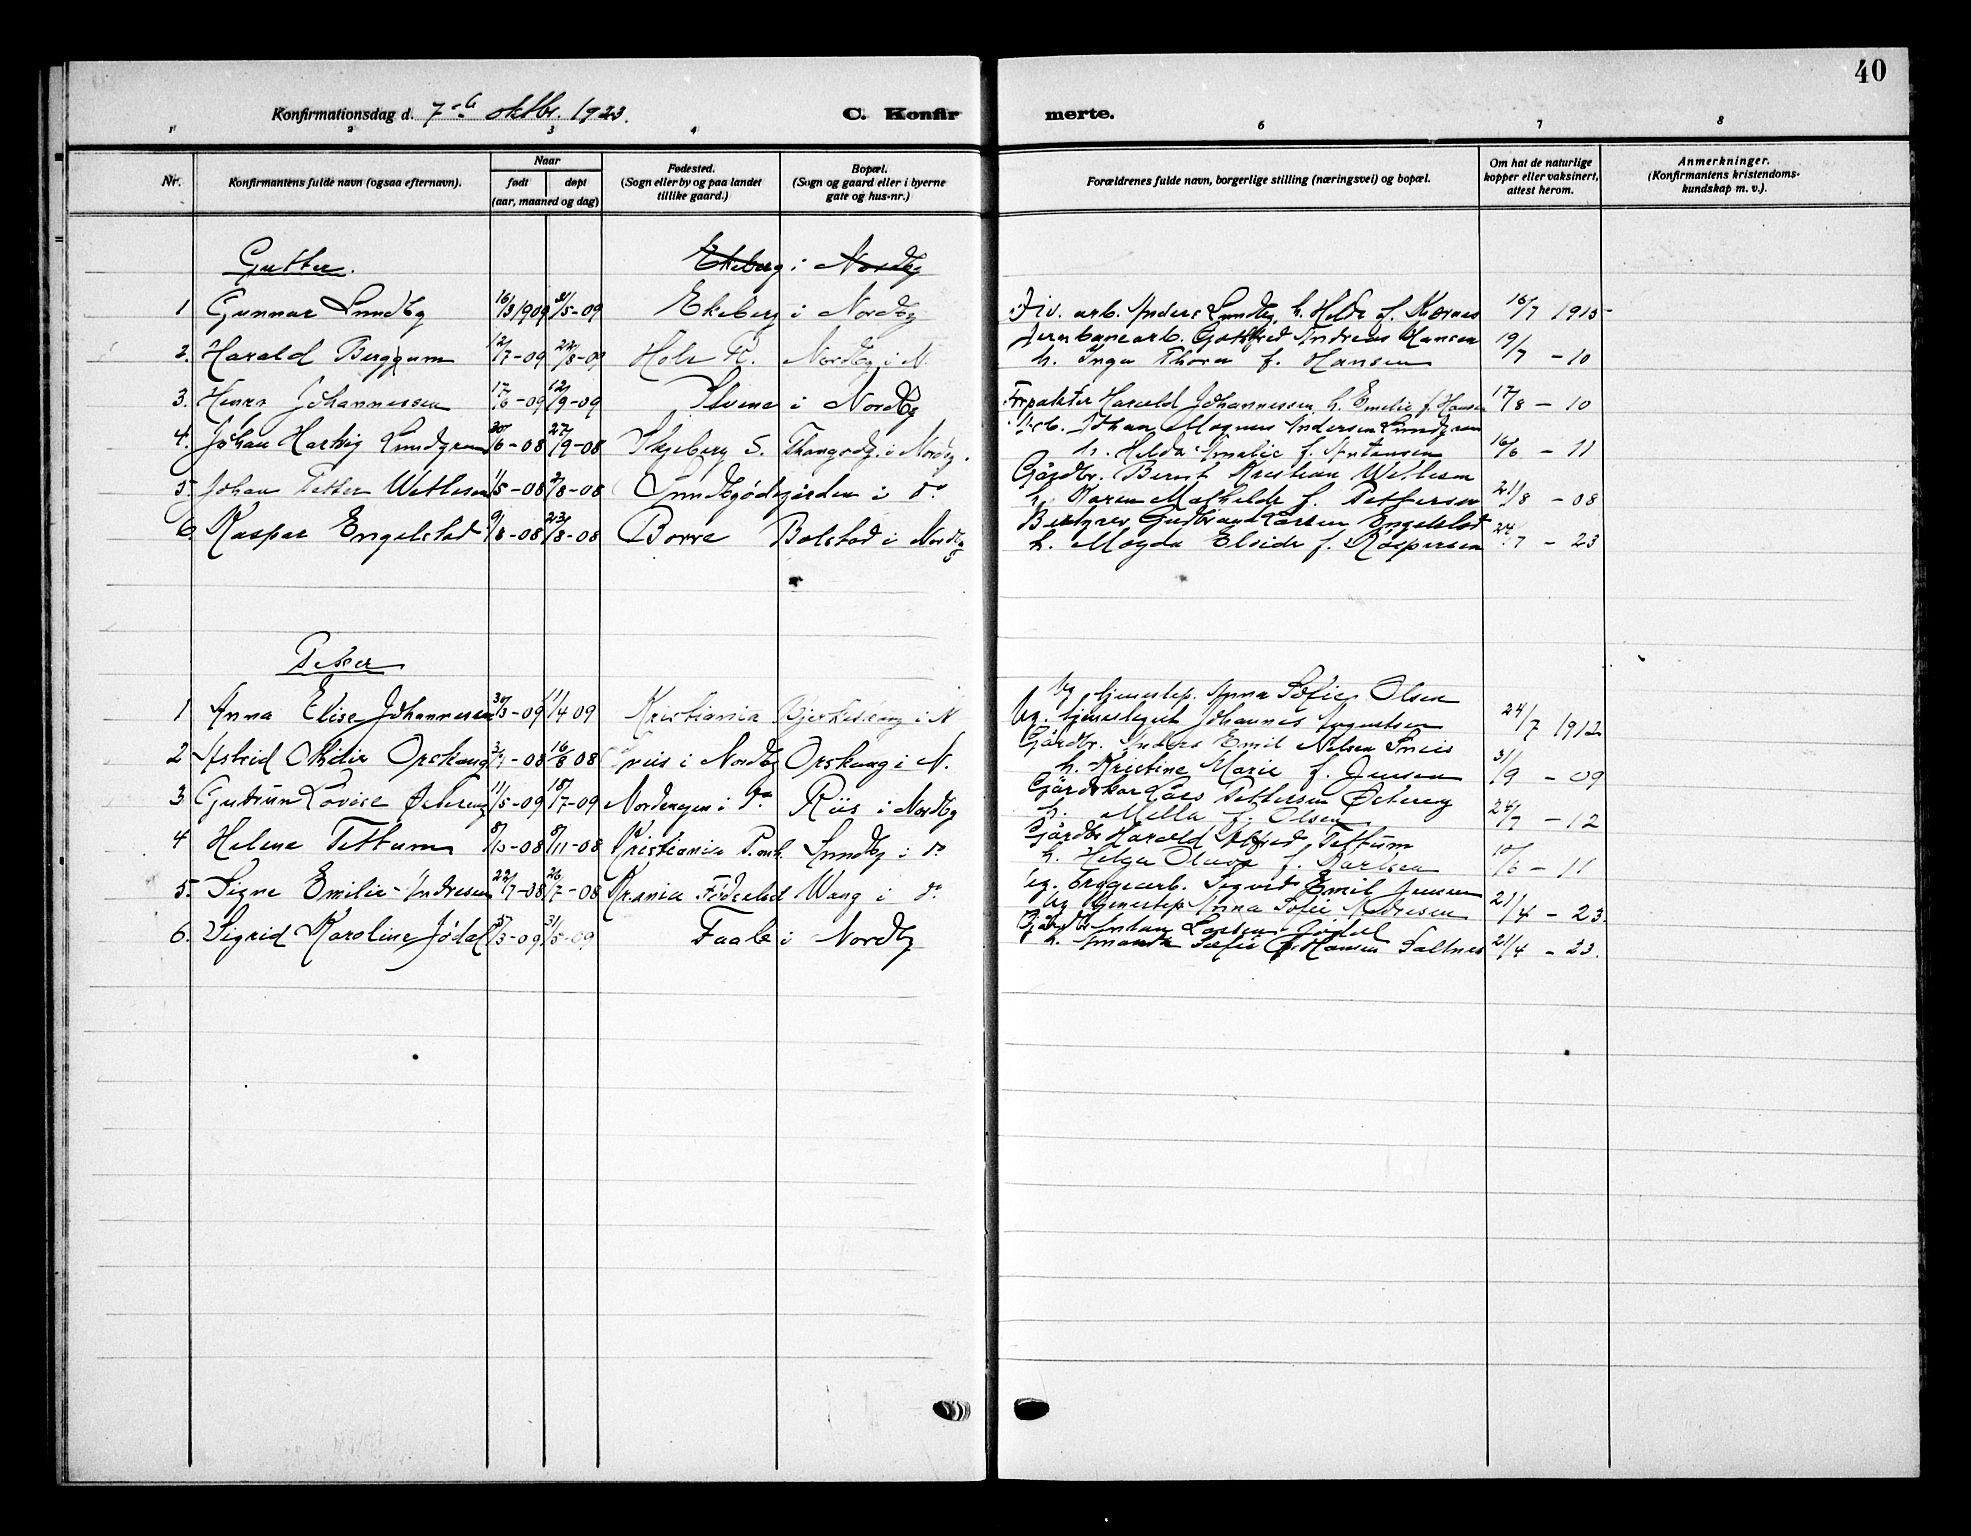 40
Konfirmationsdag d. 7de oktbr. 1923.
C. Konfirmerte.
1 2 3 4 6 7 8
Nr.
Konfirmantens fulde navn (ogsaa efternavn).
Naar
født døpt
(aar, maaned og dag)
Fødested.
(Sogn eller by og paa landet
tillike gaard.)
Bopæl.
(Sogn og gaard eller i byerne
gate og hus-nr.)
Forældrenes fulde navn, borgerlige stilling (næringsvei) og bopæl.
Om hat de naturlige
kopper eller vaksinert,
attest herom.
Anmerkninger.
(Konfirmantens kristendoms-
kundskap m. v.).
Gutter. Ekeberg i Nordby
1 Gunnar Lundby 16/3 1909 31/5-09 Ekeberg i Nordby Div. arb. Anders Lundby, h. Hilda f. 16/7 1915
2. Harald Berggum 12/7-09 22/8-09 Nordby i N. Jernbanearb. Gottfred Andreas Hansen
h. Inga Thora f. Hansen 19/7 - 10
3. Johannessen 17/6-09 12/9-09 i Nordby Forpakter Harald Johannessen, h. Emilie f. Hansen 17/8 - 10
4. Johan Hartvig Lundgren 30/6-08 27/9-08 Skjeberg S. i Nordby. Arb. Johan Magnus Andersen Lundgren
h. Hilda Amalie f. Antonsen 16/6 - 11
5. Johan Petter Wethesen /5-08 2/8-08 i do Gårdbr. Bernt Kristian
h. Karen Mathilde f. Pettersen 21/8 - 08
6. Kaspar Engelstad 9/8-08 23/8-08 Borre Bolstad i Nordby Bestyrer Gudbrand Larsen Engelstad
h. Magda f. Kaspersen 24/7 - 23
Piker
1 Anna Elise Johannesen 30/3-09 11/4 09 Kristiania Bjerkeseng i N Ug. tjenestep. Anna Sofie Olsen
Ug. tjenestegut Johannes Augustsen 24/7 1912
2 Astrid Otilie Opskaug -08 16/8 08 i Nordby Opskaug i N. Gårdbr. Anders Emil Nilsen
h. Kristine Marie f. Jensen 31/9 - 09
3 Gudrun Lovise Østereng 11/5-09 18/7-09 Nordengen i do Riis i Nordby Lars Pettersen Østereng
h. Milla f. Olsen 24/7 - 12
4 Helene Tettum -08 8/11-08 Kristiania Lundby i do Gårdbr Harald Alfred Tettum
h. Helga Olava f. 10/6 - 11
5. Signe Emilie Andresen 22/7-08 26/7-08 Krania Fødselsst Wang i do Ug. Sigurd Emil Jensen
Ug tjenestep Anna Sofie Andresen 21/4 - 23.
6. Sigrid Karoline Jødal /3-09 31/5-09 Faale i Nordby Gårdbr Anton Larsen Jødal
h. Amanda Sofie f. Hansen Saltnes 21/4 - 23.